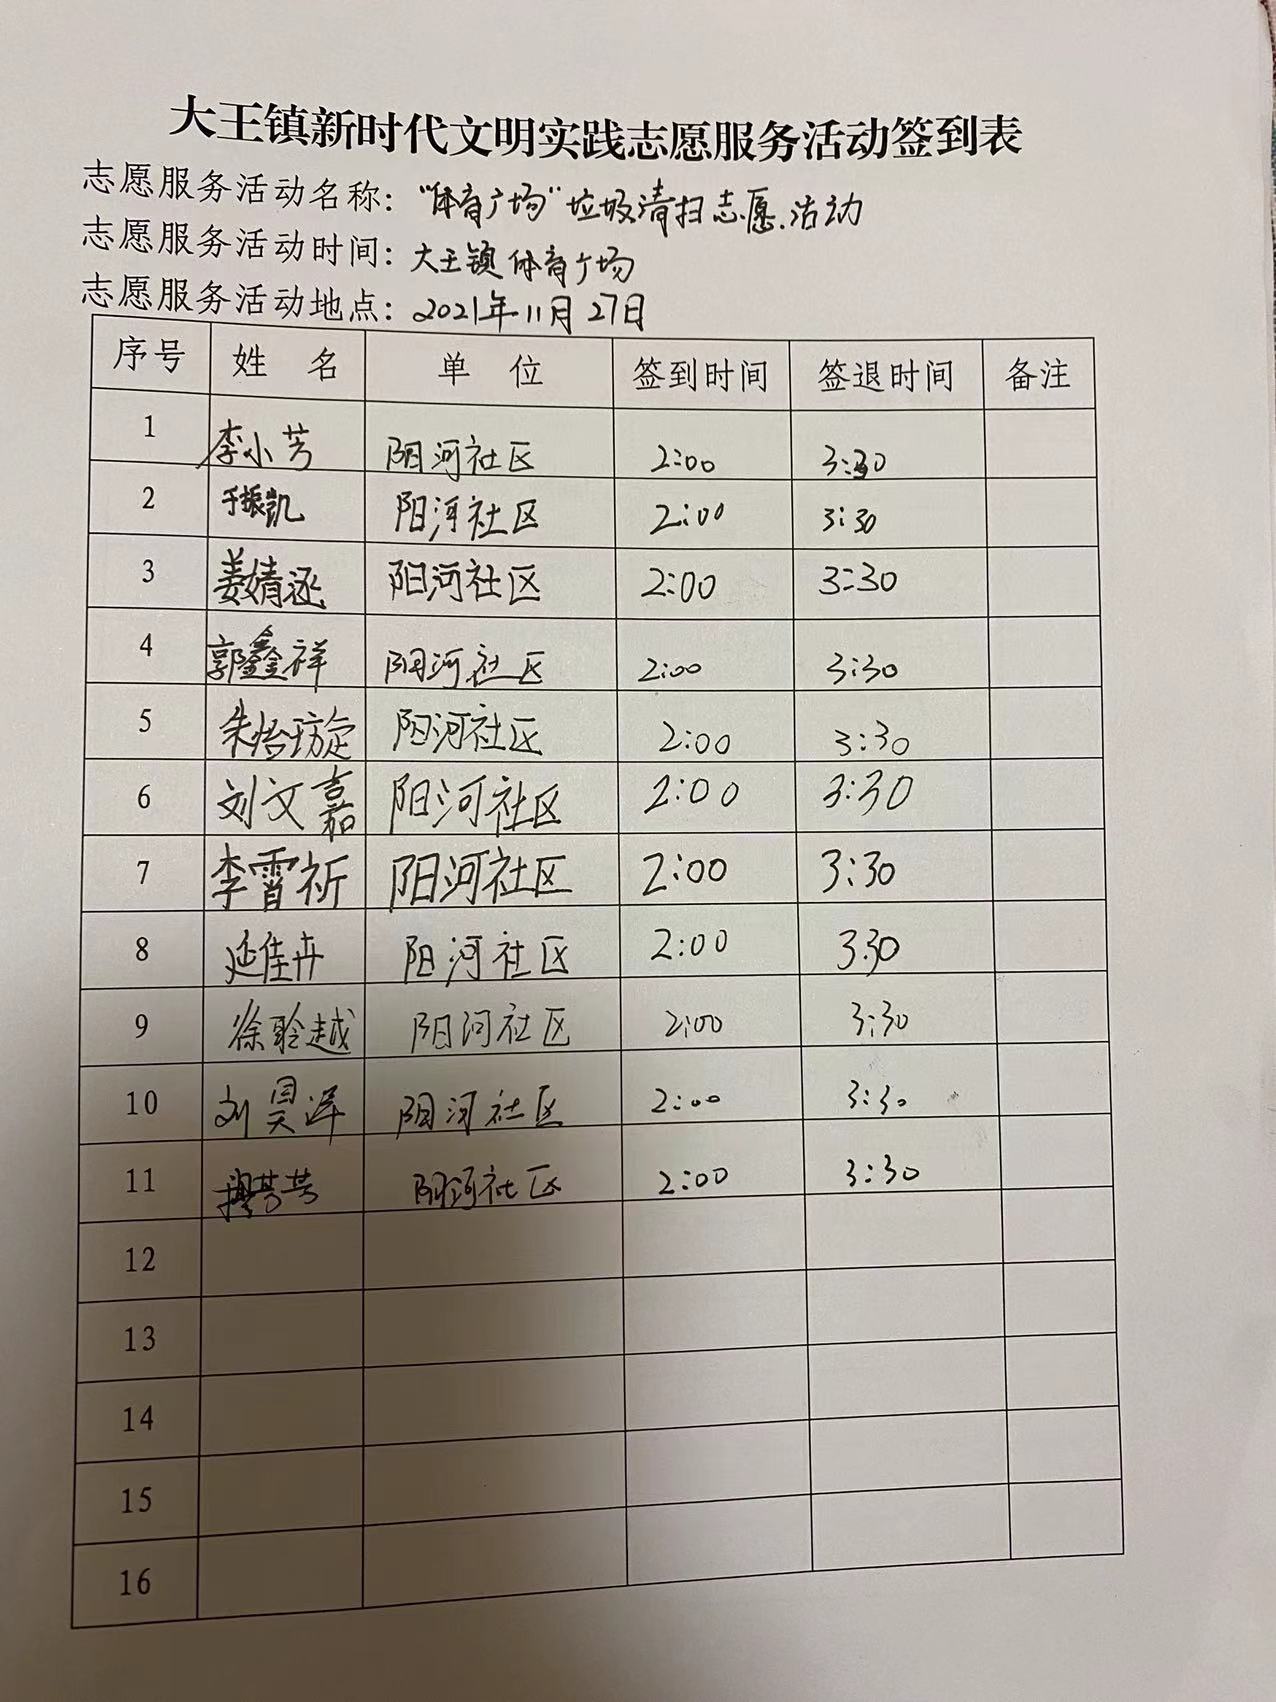 大王镇新时代文明实践志愿服务活动签到表
志愿服务活动名称：“体育广场”垃圾清扫志愿活动
志愿服务活动时间：大王镇体育广场
志愿服务活动地点：2021年11月27日
序号 姓 名 单 位 签到时间 签退时间 备注
1 李小芳 阳河社区 2:00 3:30
2 于振凯 阳河社区 2:00 3:30
3 姜婧涵 阳河社区 2:00 3:30
4 郭鑫祥 阳河社区 2:00 3:30
5 朱怡 阳河社区 2:00 3:30
6 刘文嘉 阳河社区 2:00 3:30
7 李霄祈 阳河社区 2:00 3:30
8 延佳卉 阳河社区 2:00 3:30
9 徐聆越 阳河社区 2:00 3:30
10 刘昊 阳河社区 2:00 3:30
11 阳河社区 2:00 3:30
12
13
14
15
16